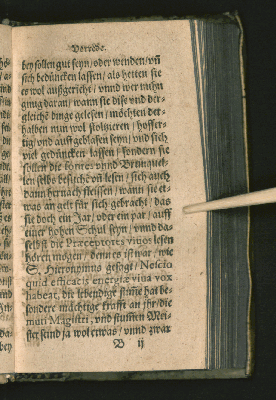 Vorrede.
bey sollen gut seyn / oder wenden / vñ
sich bedüncken lassen / als hetten sie
es wol außgericht / vnnd wer nuhn
gnug daran / wann sie dise vnd der-
gleichẽ dinge gelesen / möchten der-
halben nun wol stoltzieren / hoffer-
tig vnd auffgeblasen seyn / vnd sich
viel gedüncken lassen / sondern sie
sollen die fontes vnnd Brunquel-
len selbs besuchẽ vñ lesen / sich auch
dann hernach fleissen / wann sie et-
was an gelt für sich gebracht / das
sie doch ein Jar / oder ein par / auff
einer hohen Schul seyn / vnnd da-
selbst die Præceptores viuos lesen
hören mögen / denn es ist war / wie
S. Hieronymus gesagt / Nescio
quid efficaciæ energiæ viua vox
habeat, die lebendige stim̃e hat be-
sondere mächtige krafft an jhr / die
muti Magistri, vnd stummen Mei-
ster seind ja wol etwas / vnnd zwar
B ij